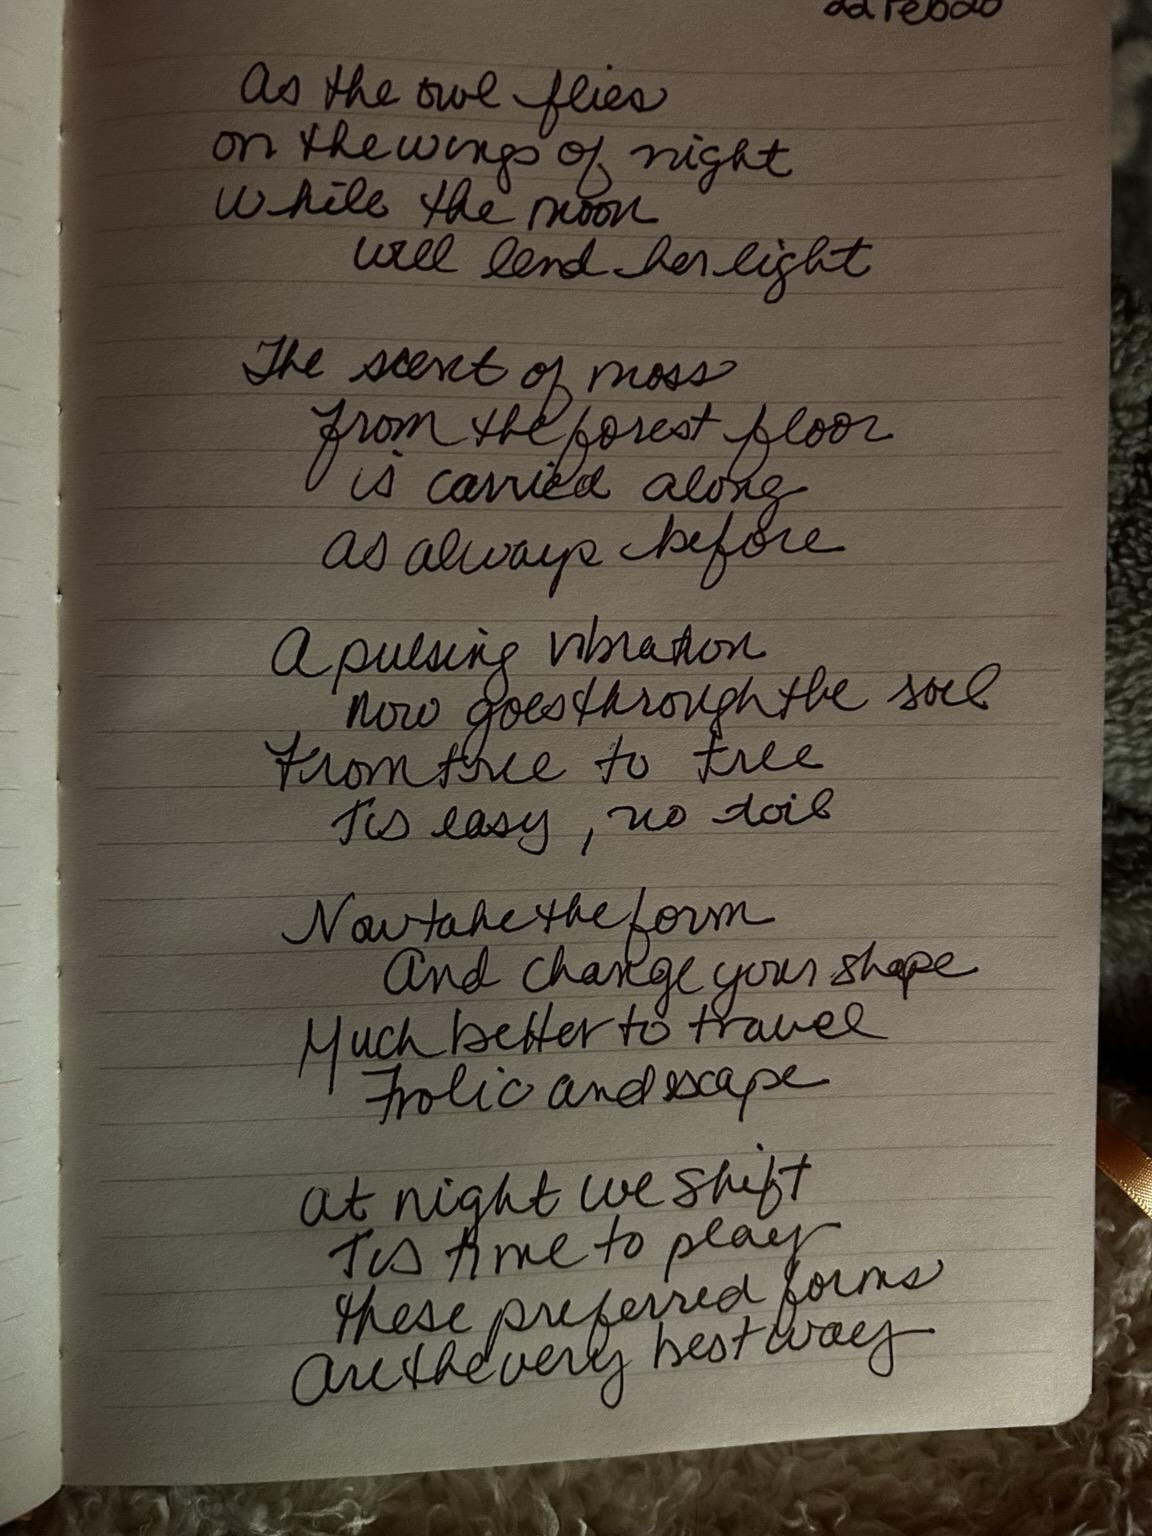 As the owl flies
on the wings of night
While the moon
will lend her light
The scent of moss
from the forest floor
is carried along
as always before
A pulsing vibration
now goes through the soil
From tree to tree
Tis easy, no toil
Now take the form
And change your shape
Much better to travel
Frolic and escape
At night we shift
Tis time to play
these preferred forms
Are the very best way